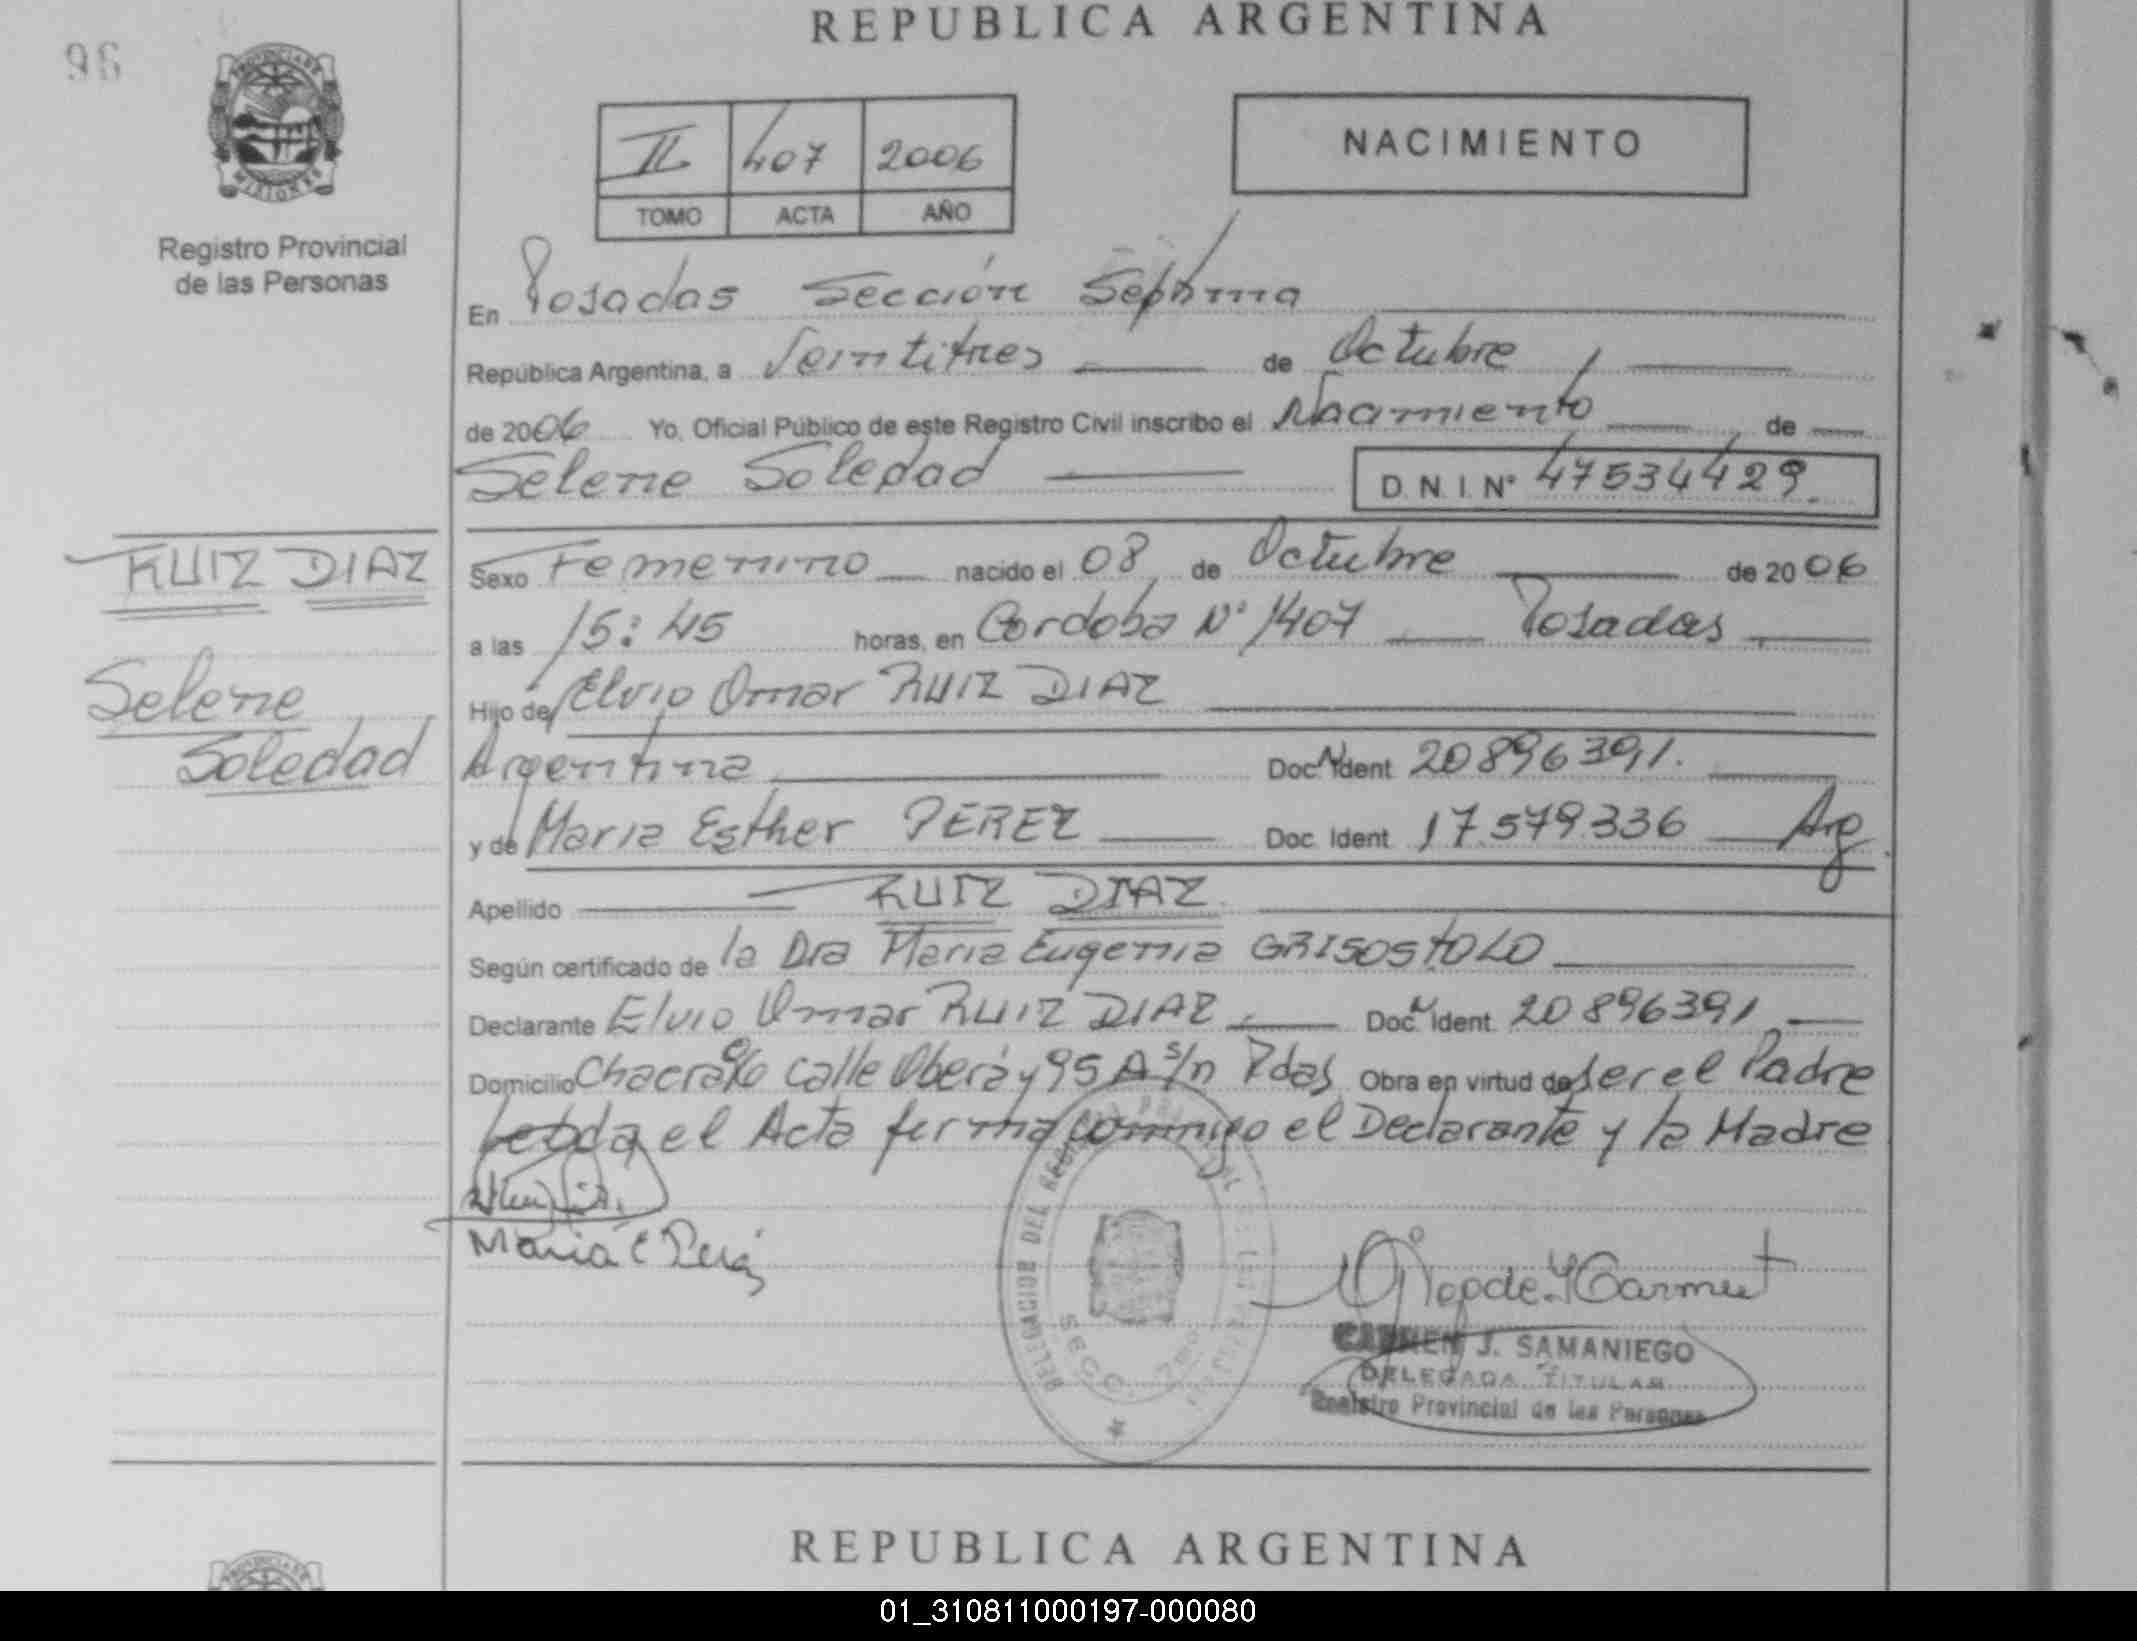 REPUBLICA ARGENTINA
96
PROVINCIA DE
MISIONES
Registro Provincial
de las Personas
II 407 2006
TOMO ACTA AÑO
NACIMIENTO
En Posadas Sección Séptima
República Argentina, a Veintitres de Octubre
de 2006 Yo, Oficial Público de este Registro Civil inscribo el Nacimiento de
Selene Soledad D. N. I. N° 47534429.
RUIZ DIAZ
Selene
Soledad
Sexo Femenino nacido el 08 de Octubre de 2006
a las 15:45 horas, en Cordoba N° 1407 Posadas
Hijo de Elvio Omar RUIZ DIAZ
Argentina Doc. N Ident 20896391.
y de Maria Esther PEREZ Doc. Ident 17.579.336 Arg.
Apellido RUIZ DIAZ
Según certificado de la Dra Maria Eugenia GRISOSTOLO
Declarante Elvio Omar RUIZ DIAZ Doc. N Ident. 20896391
Domicilio Chacra calle Oberá y 95 A s/n Pdas Obra en virtud de ser el Padre
Leida el Acta firma conmigo el Declarante y la Madre
Maria E Perez
DELEGACION DEL REGISTRO PROVINCIAL DE LAS PERSONAS
SECC. 7ma
CARMEN J. SAMANIEGO
DELEGADA TITULAR
Registro Provincial de las Personas
REPUBLICA ARGENTINA
PROVINCIA DE
01_310811000197-000080